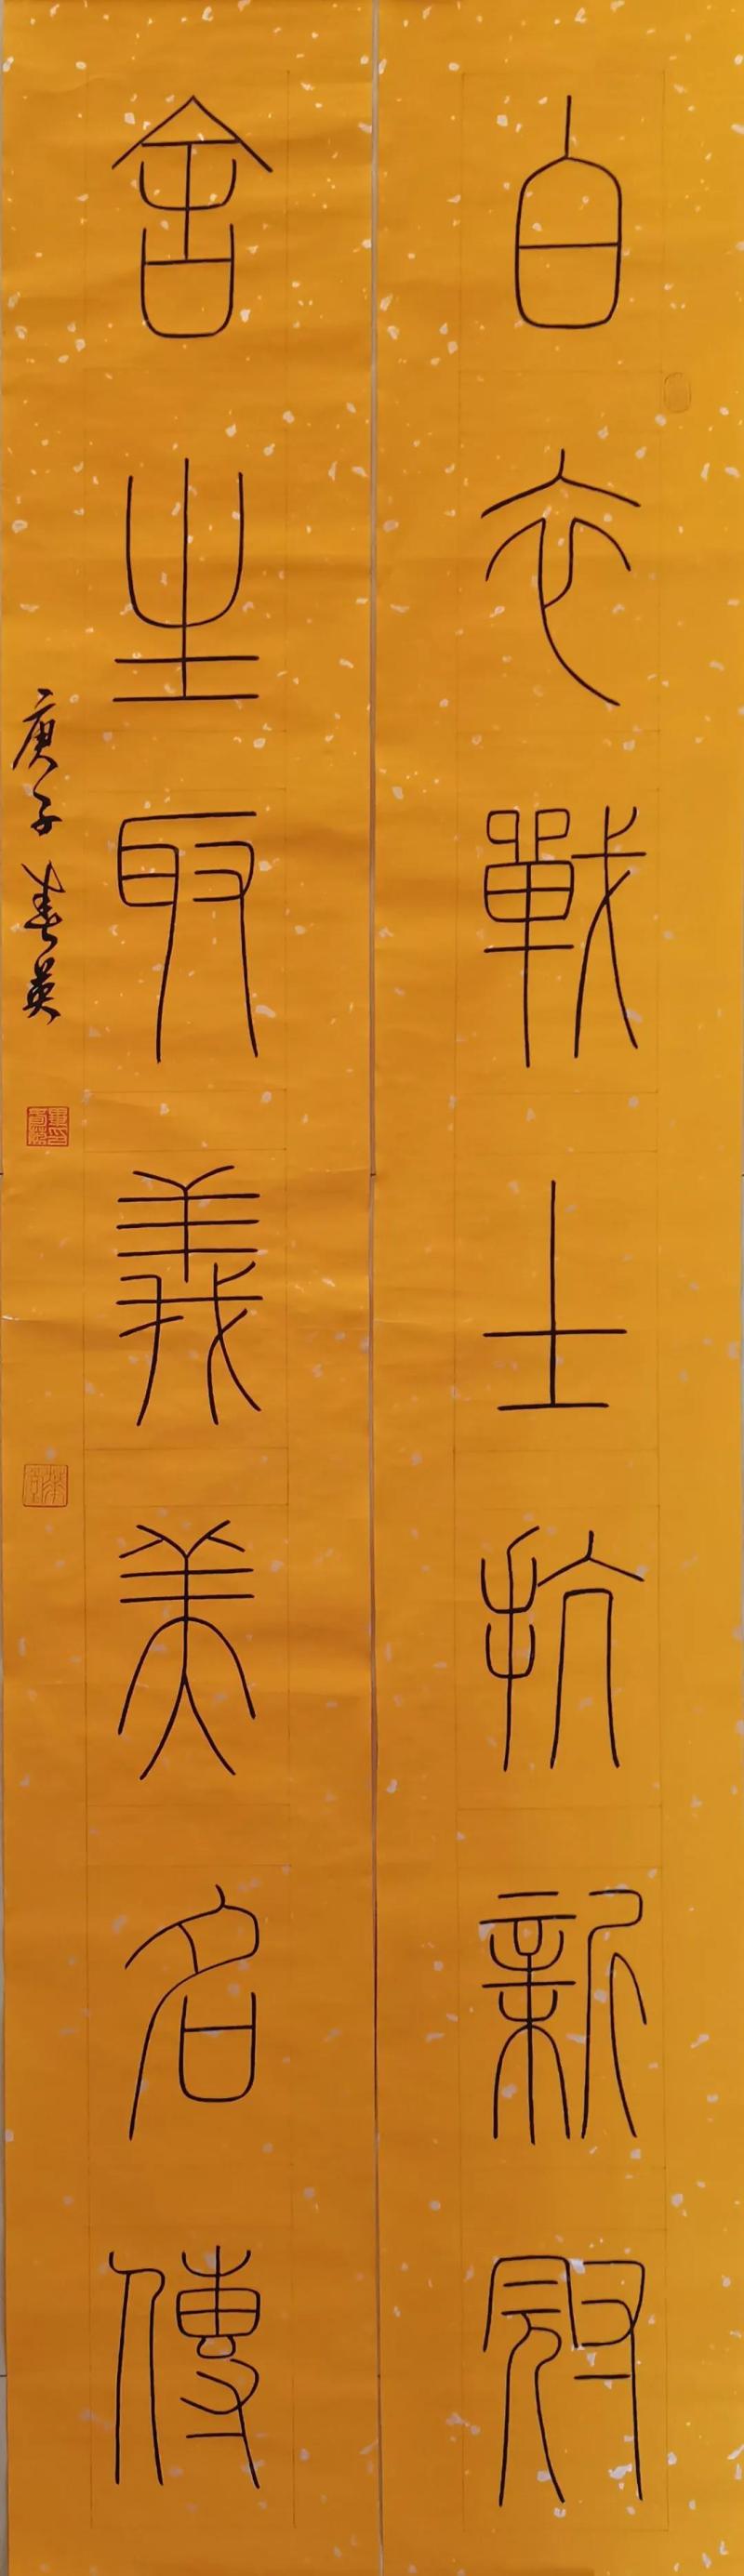 白衣戰士抗新冠
舍生取義美名傳
庚子 春英